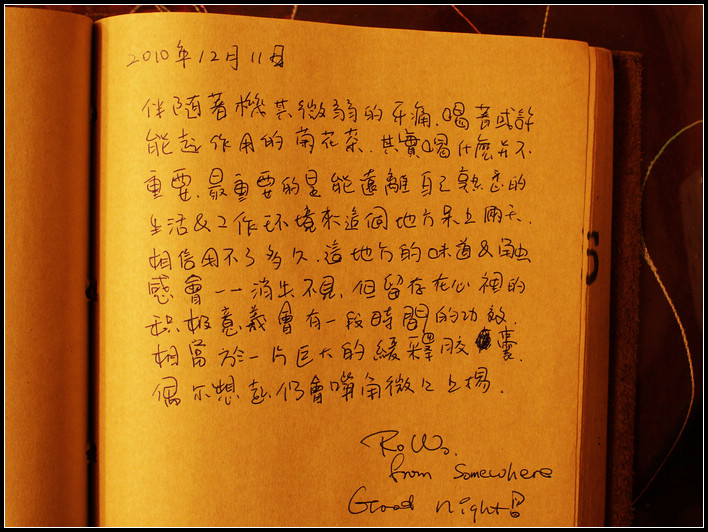 2010年12月11日
伴隨著機其微弱的牙痛.喝著或許
能起作用的菊花茶.其實喝什麼并不
重要.最重要的是能遠離自己熟悉的
生活&工作环境來這個地方呆上兩天.
相信用不了多久.這地方的味道&触
感會一一消失不見.但留存在心裡的
积极意義會有一段時間的功效.
相當於一片巨大的緩釋胶囊.
偶尔想起仍會嘴角微微上揚.
from Somewhere
Good night!